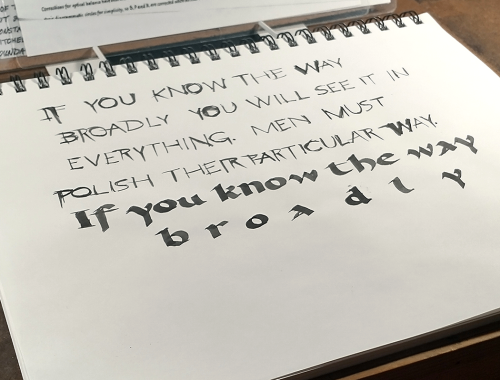 IF YOU KNOW THE WAY
BROADLY YOU WILL SEE IT IN
EVERYTHING. MEN MUST
POLISH THEIR PARTICULAR WAY.
If you know the way
broadly